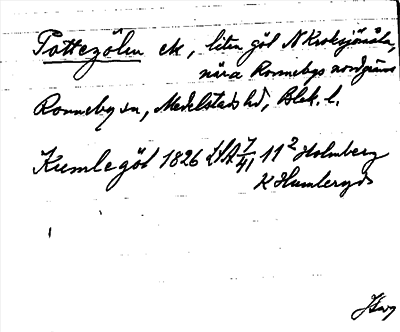 Pottegölen ek, liten göl N Kroksjömåla,
nära Ronnebys nordgräns
Ronneby sn, Medelstads hd, Blek. l.
Kumlegöl 1826 LSA 7/41 11² Holmberg
K Humleryds